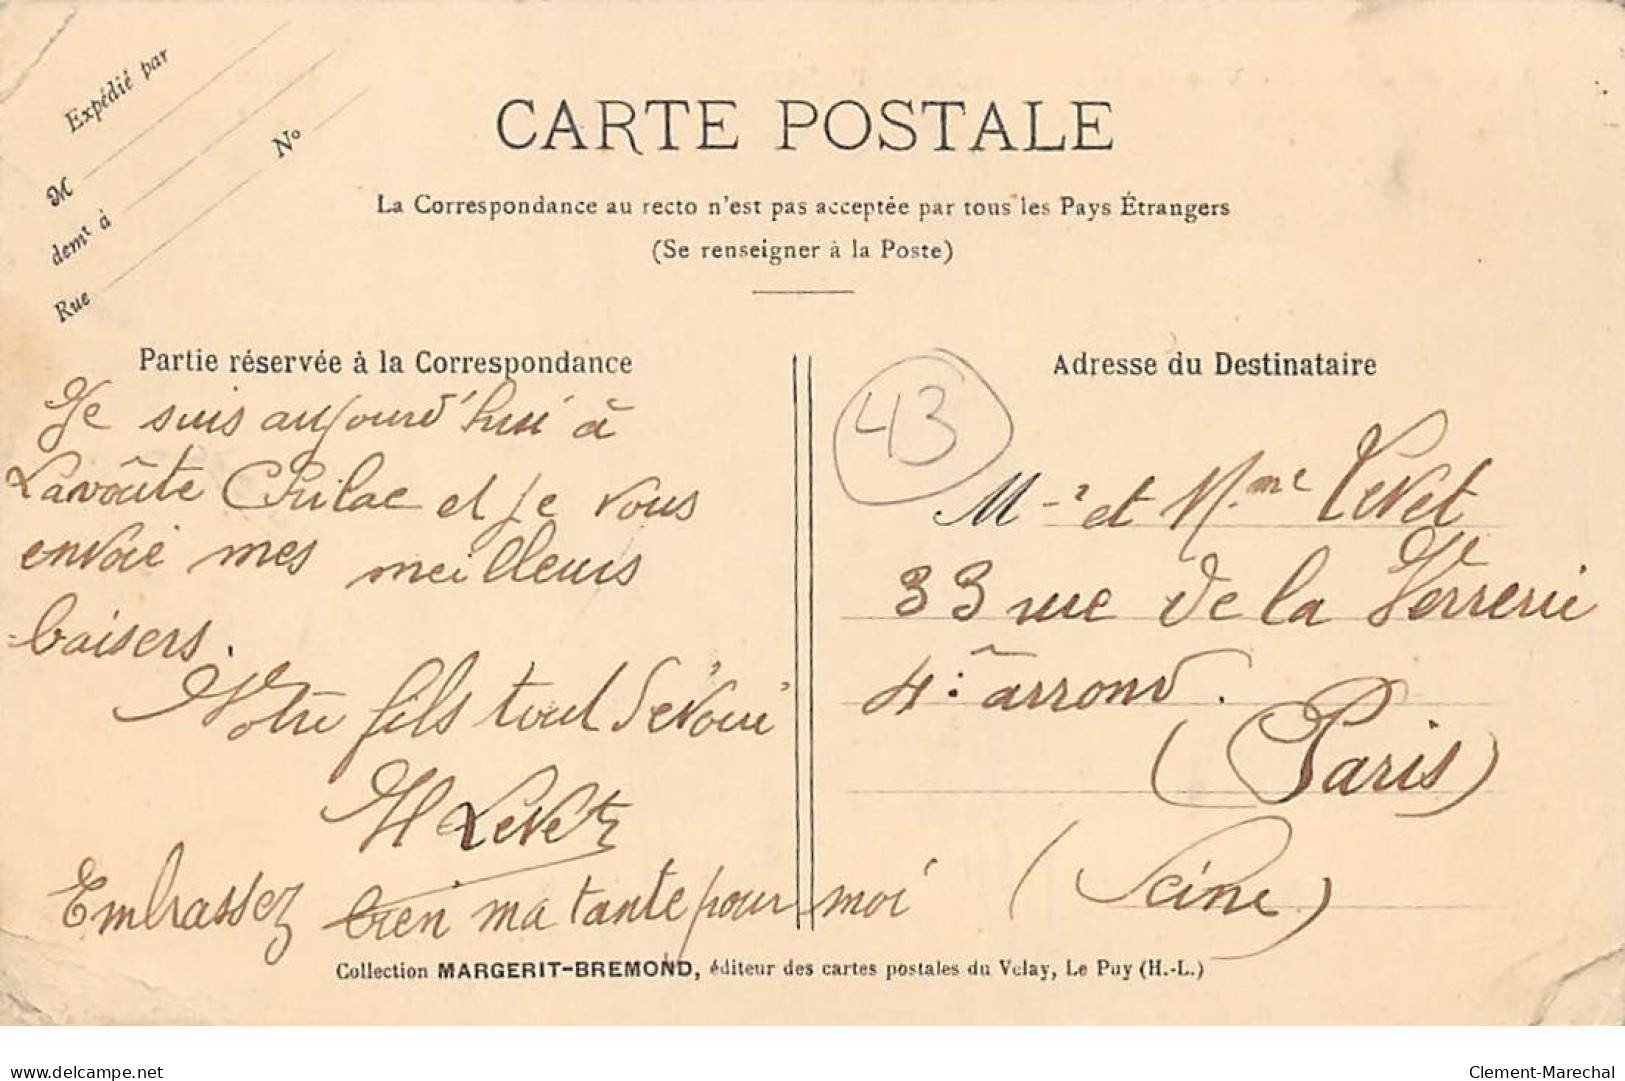 Expédié par
M
demt à
Rue
No
CARTE POSTALE
La Correspondance au recto n'est pas acceptée par tous les Pays Étrangers
(Se renseigner à la Poste)
Partie réservée à la Correspondance
Je suis aujourd'hui à
Lavoûte Chilac et je vous
envoie mes meilleurs
baisers.
Votre fils tout dévoué
H Levet
Embrassez bien ma tante pour moi
Adresse du Destinataire
43
Mr et Mme Levet
33 rue de la Verrerie
4e arrond.
(Paris)
(Seine)
Collection MARGERIT-BREMOND, éditeur des cartes postales du Velay, Le Puy (H.-L.)
delcampe.net
Clement-Marechal